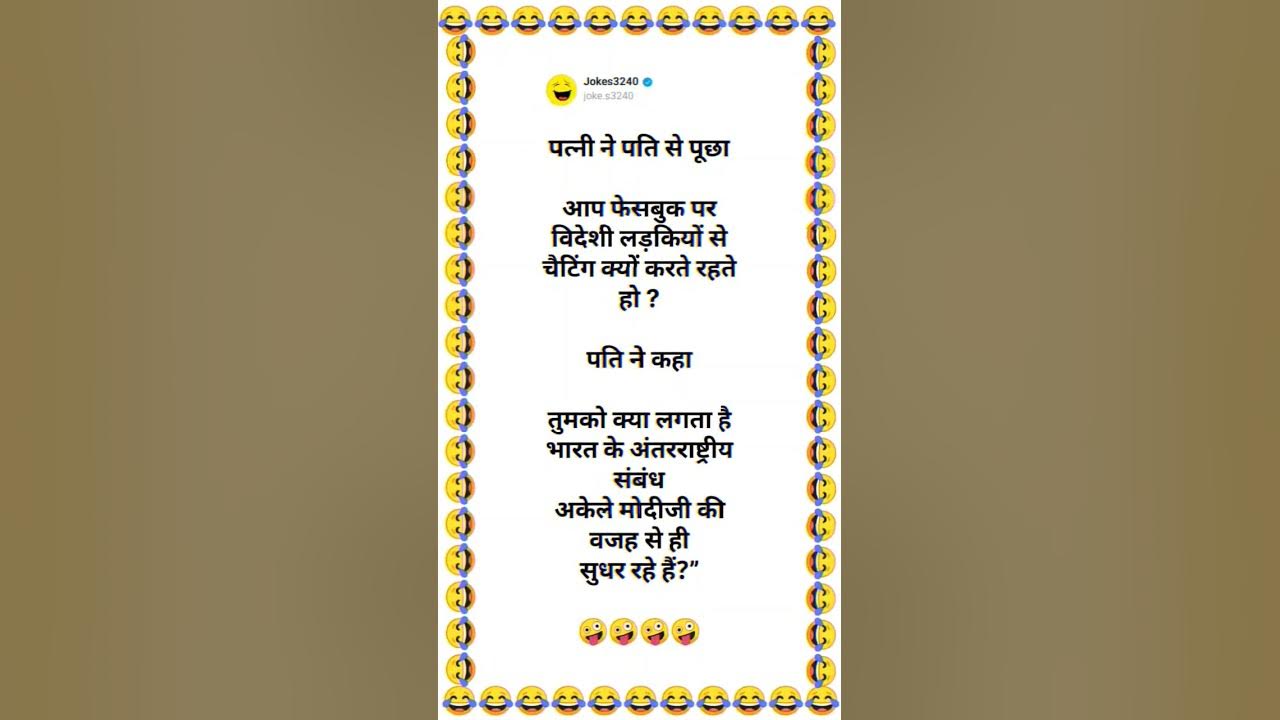 Jokes3240
joke.s3240
पत्नी ने पति से पूछा
आप फेसबुक पर
विदेशी लड़कियों से
चैटिंग क्यों करते रहते
हो ?
पति ने कहा
तुमको क्या लगता है
भारत के अंतरराष्ट्रीय
संबंध
अकेले मोदीजी की
वजह से ही
सुधर रहे हैं?”